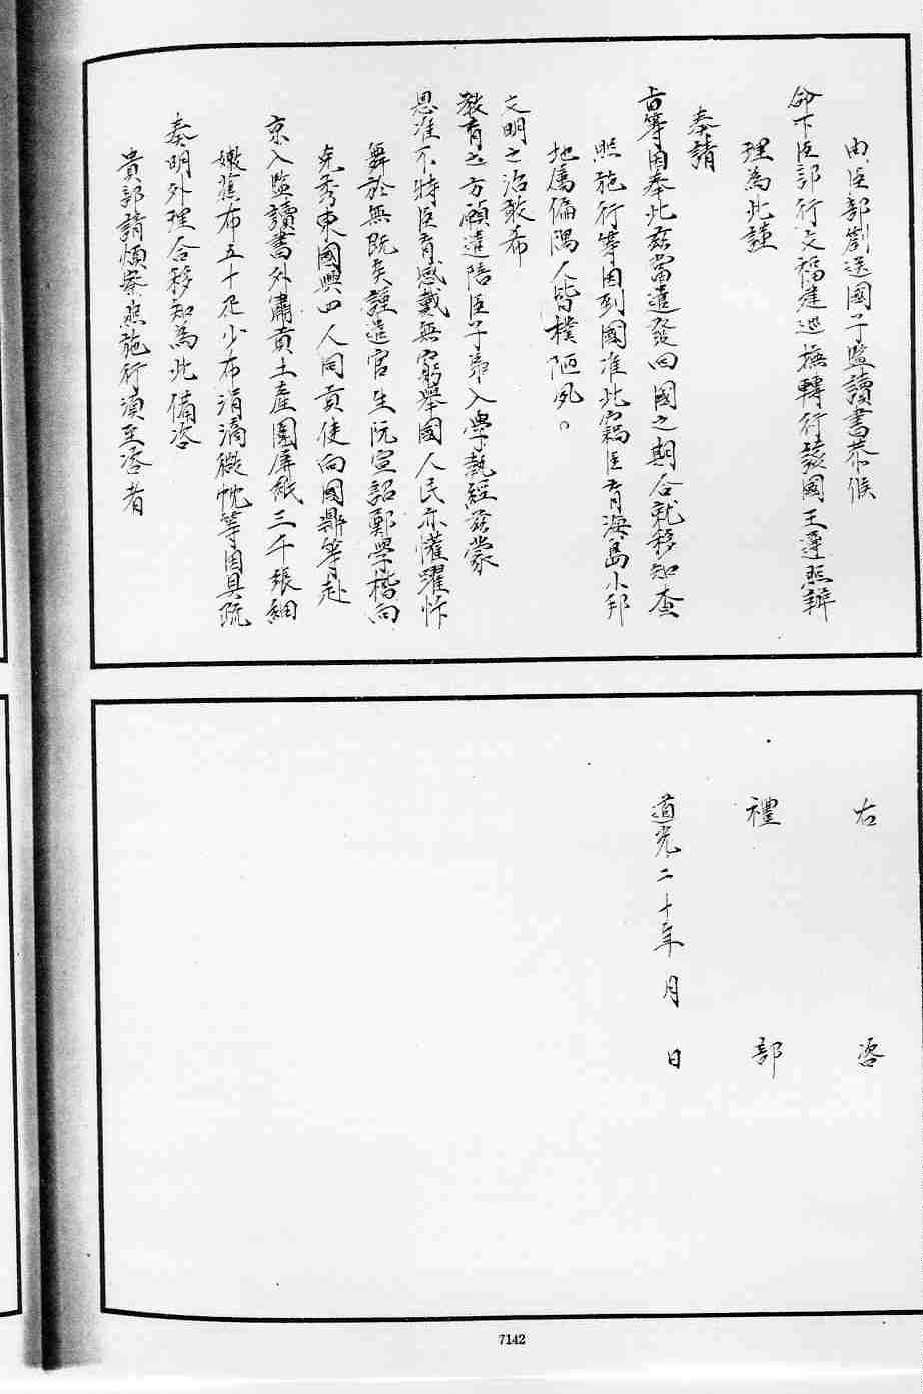 由臣部劄送國子監讀書恭候
命下臣部行文福建巡撫轉行該國王遵照辦
理為此謹
奉請
旨等因奉此茲當遣發回國之期合就移知查
照施行等因到國准此竊臣育海島小邦
地属偏隅人皆樸陋夙。
文明之治敢希
教育之方願遣陪臣子弟入學執經茲蒙
恩准不特臣育感戴無窮舉國人民亦懽躍忭
舞於無既矣謹遣官生阮宣詔鄭學楷向
克秀東國興四人同貢使向國鼎等赴
京入監讀書外肅貢土産圍屏紙三千張細
嫩蕉布五十疋少布涓滴微忱等因具疏
奏明外理合移知為此備咨
貴部請煩察照施行須至咨者
右咨
禮部
道光二十年月日
7142